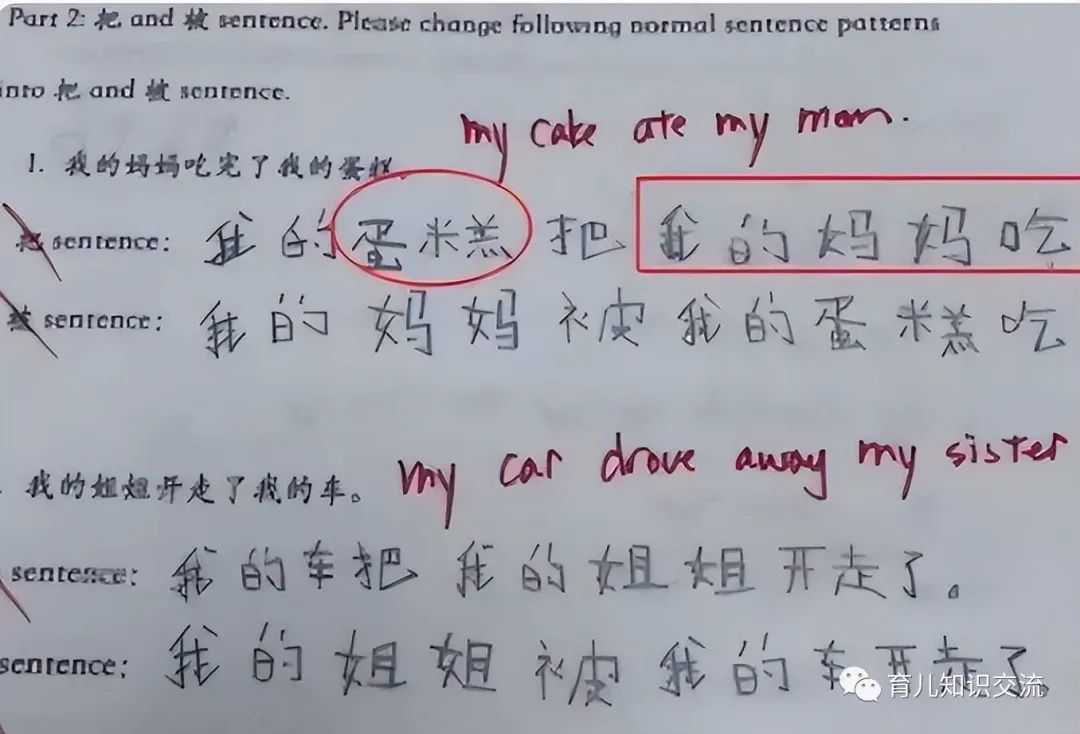 Part 2: 把 and 被 sentence. Please change following normal sentence patterns
into 把 and 被 sentence.
my cake ate my mom.
1. 我的妈妈吃完了我的蛋糕。
把 sentence: 我的蛋糕把我的妈妈吃
被 sentence: 我的妈妈被我的蛋糕吃
my car drove away my sister
我的姐姐开走了我的车。
sentence: 我的车把我的姐姐开走了。
sentence: 我的姐姐被我的车开走了
育儿知识交流